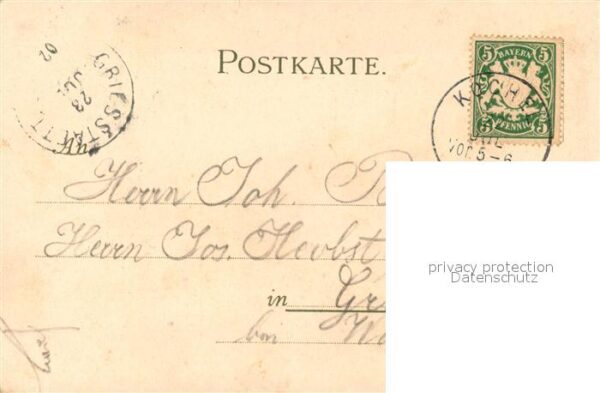 POSTKARTE.
GRIESSTÄTT
23
JUL
02
5 BAYERN 5
5 PFENNIG 5
KOCHEL
JUL
VOR 5-6
An
Herrn Joh.
Herrn Jos. Herbst
in Gr
bei
privacy protection
Datenschutz